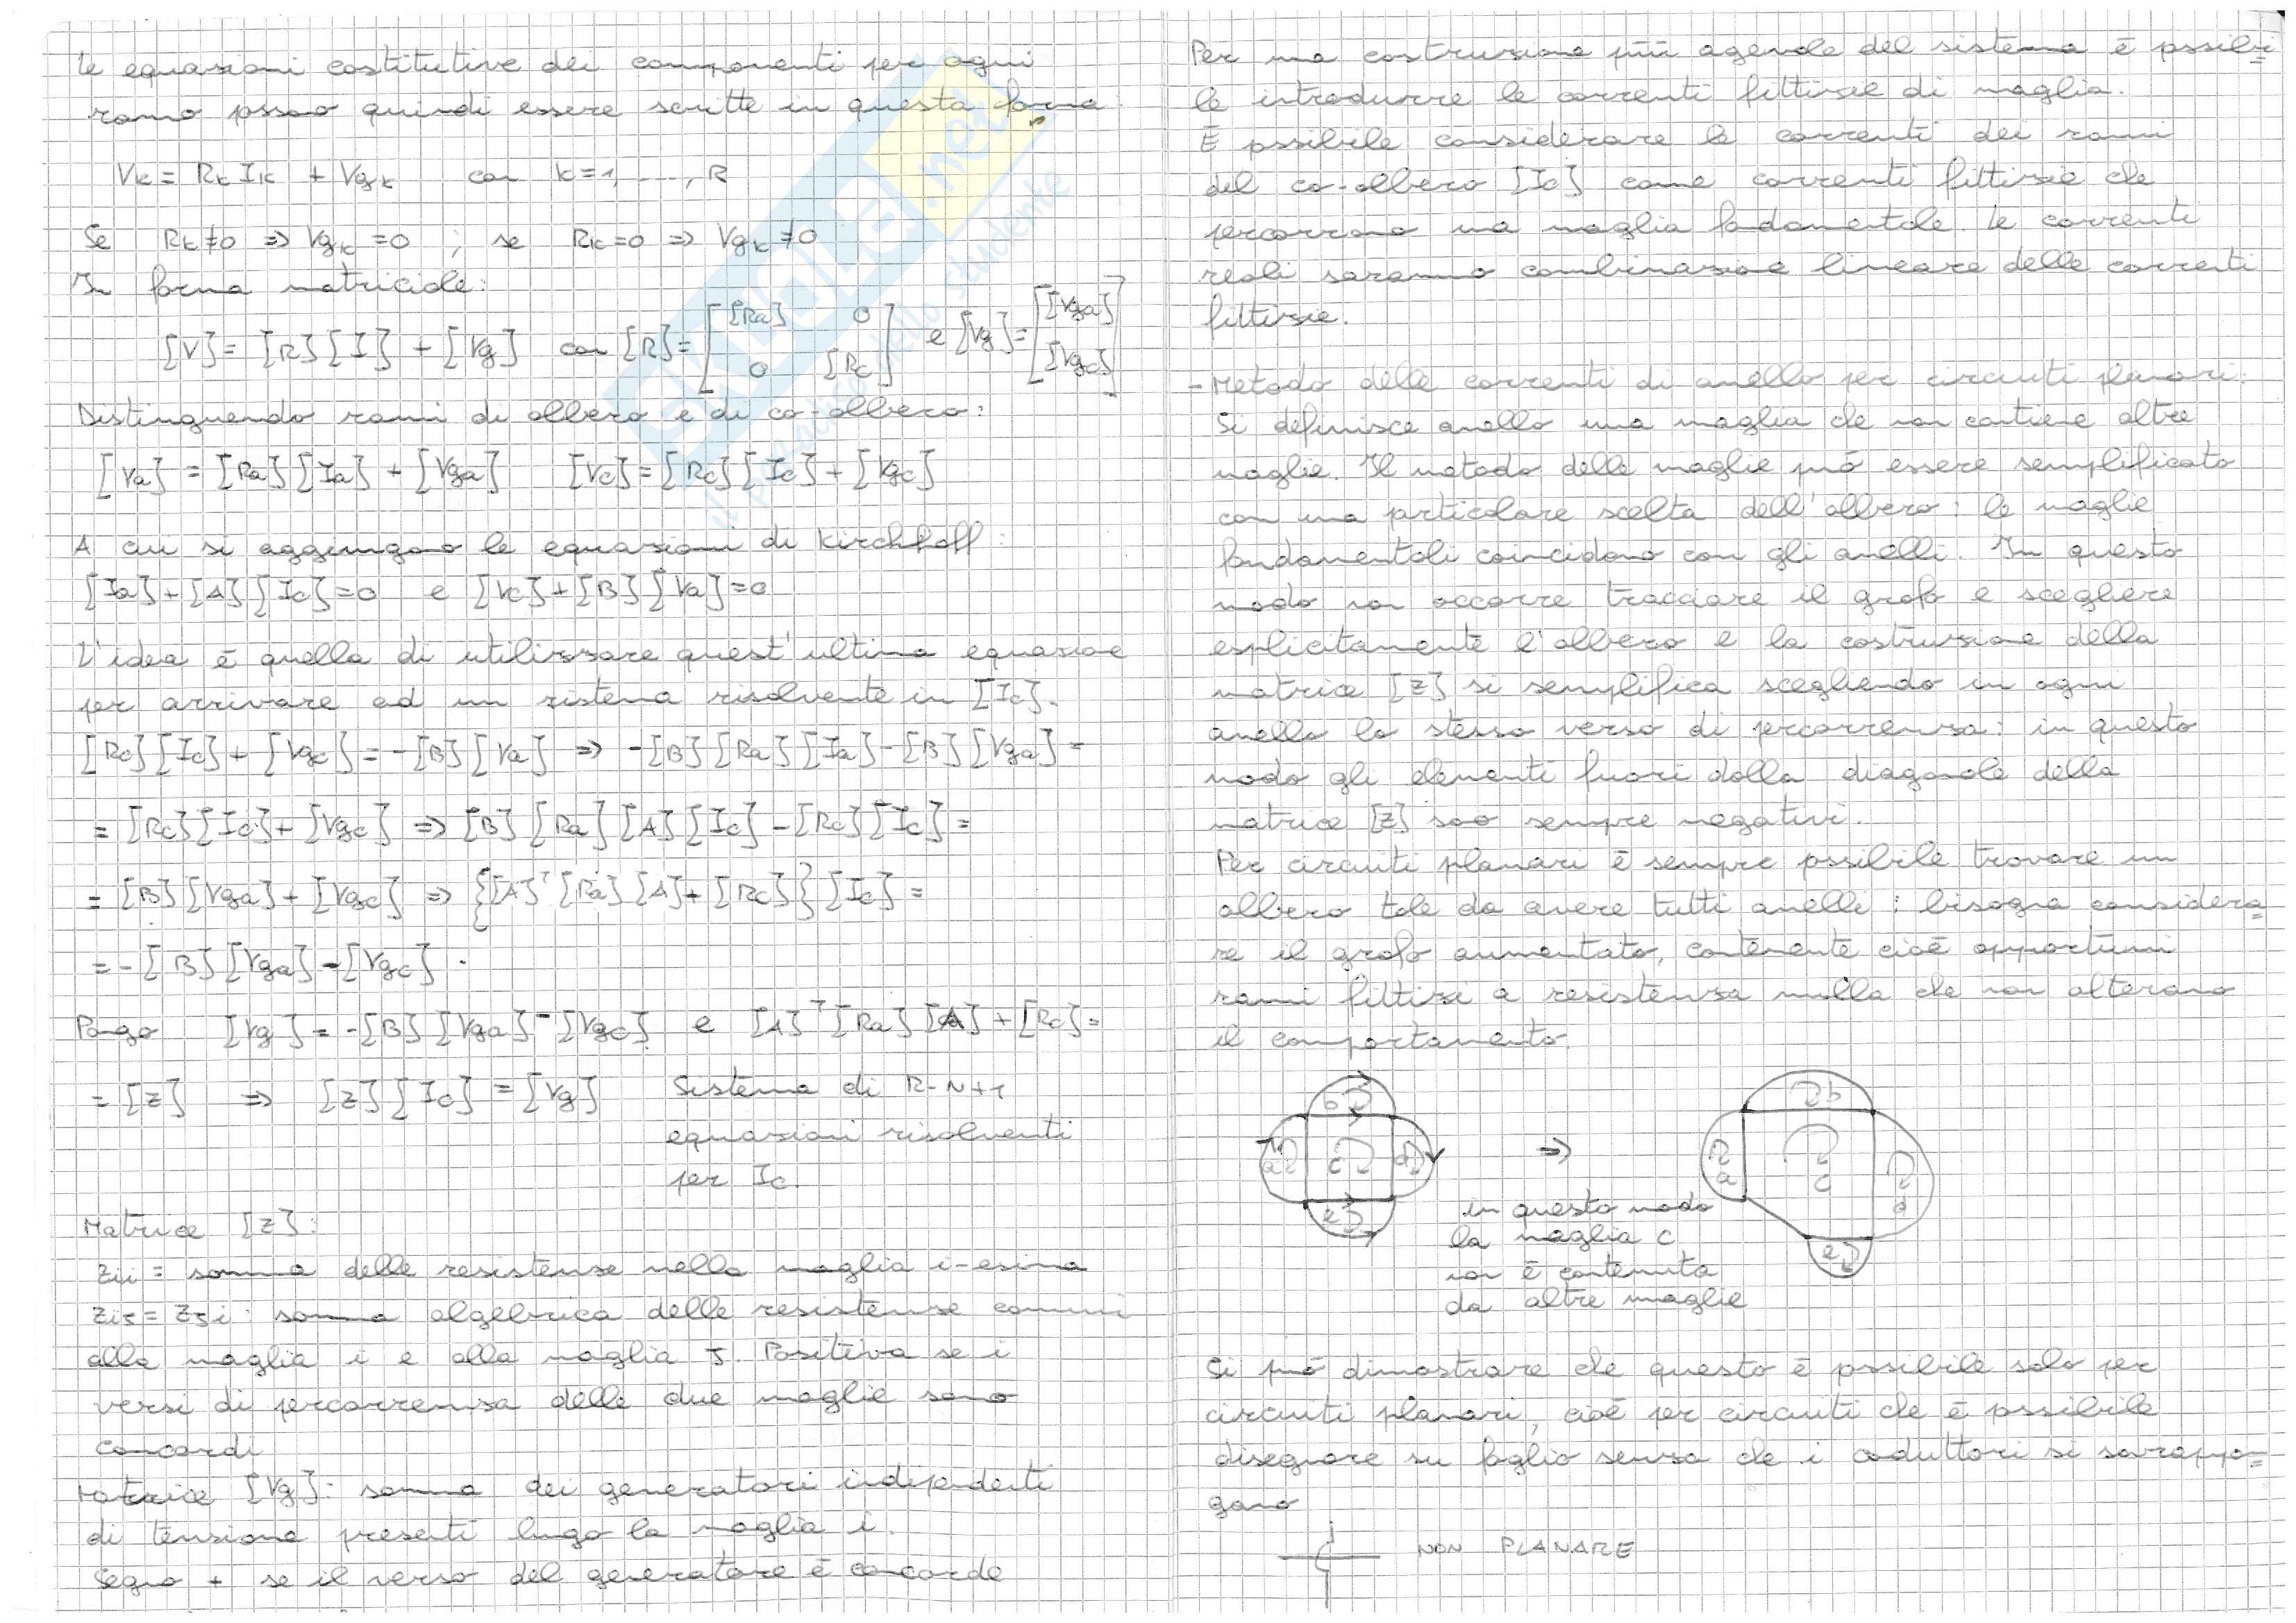 Le equazioni costitutive dei componenti per ogni
ramo possono quindi essere scritte in questa forma:
Vk = Rk Ik + Vgk con k=1, ..., R
Se Rk≠0 => Vgk =0 ; se Rk=0 => Vgk ≠0
In forma matriciale:
[V] = [R][I] + [Vg] con [R] = [[Ra] 0 0 [Rc]] e [Vg] = [[Vga] [Vgc]]
Distinguendo rami di albero e di co-albero:
[Va] = [Ra][Ia] + [Vga] [Vc] = [Rc][Ic] + [Vgc]
A cui si aggiungono le equazioni di Kirchhoff:
[Ia]+[A][Ic]=0 e [Vc]+[B][Va]=0
L'idea è quella di utilizzare quest'ultima equazione
per arrivare ad un sistema risolvente in [Ic].
[Rc][Ic] + [Vgc] = -[B][Va] => -[B][Ra][Ia]-[B][Vga] =
= [Rc][Ic]+[Vgc] => [B][Ra][A][Ic] -[Rc][Ic] =
= [B][Vga]+[Vgc] => {[A]ᵀ[Ra][A]+[Rc]}[Ic] =
= -[B][Vga]-[Vgc].
Pongo [Vg] = -[B][Vga]-[Vgc] e [A]ᵀ[Ra][A]+[Rc] =
= [Z] => [Z][Ic] = [Vg] Sistema di R-N+1
equazioni risolventi
per Ic.
Matrice [Z]:
Zii = somma delle resistenze nella maglia i-esima
Zij = Zji: somma algebrica delle resistenze comuni
alla maglia i e alla maglia J. Positiva se i
versi di percorrenza delle due maglie sono
concordi
Matrice [Vg]: somma dei generatori indipendenti
di tensione presenti lungo la maglia i.
Segno + se il verso del generatore è concorde
Per una costruzione più agevole del sistema è possibi
le introdurre le correnti fittizie di maglia.
È possibile considerare le correnti dei rami
del co-albero [Ic] come correnti fittizie che
percorrono una maglia fondamentale. Le correnti
reali saranno combinazione lineare delle correnti
fittizie.
- Metodo delle correnti di anello per circuiti planari:
Si definisce anello una maglia che non contiene altre
maglie. Il metodo delle maglie può essere semplificato
con una particolare scelta dell'albero: le maglie
fondamentali coincidono con gli anelli. In questo
modo non occorre tracciare il grafo e scegliere
esplicitamente l'albero e la costruzione della
matrice [Z] si semplifica scegliendo in ogni
anello lo stesso verso di percorrenza: in questo
modo gli elementi fuori dalla diagonale della
matrice [Z] sono sempre negativi.
Per circuiti planari è sempre possibile trovare un
albero tale da avere tutti anelli: bisogna considera
re il grafo aumentato, contenente cioè opportuni
rami fittizi a resistenza nulla che non alterano
il comportamento.
b
a c d
e
=>
b
a c d
e
in questo modo
la maglia c
non è contenuta
da altre maglie
Si può dimostrare che questo è possibile solo per
circuiti planari, cioè per circuiti che è possibile
disegnare su foglio senza che i conduttori si sovrappon
gano
NON PLANARE